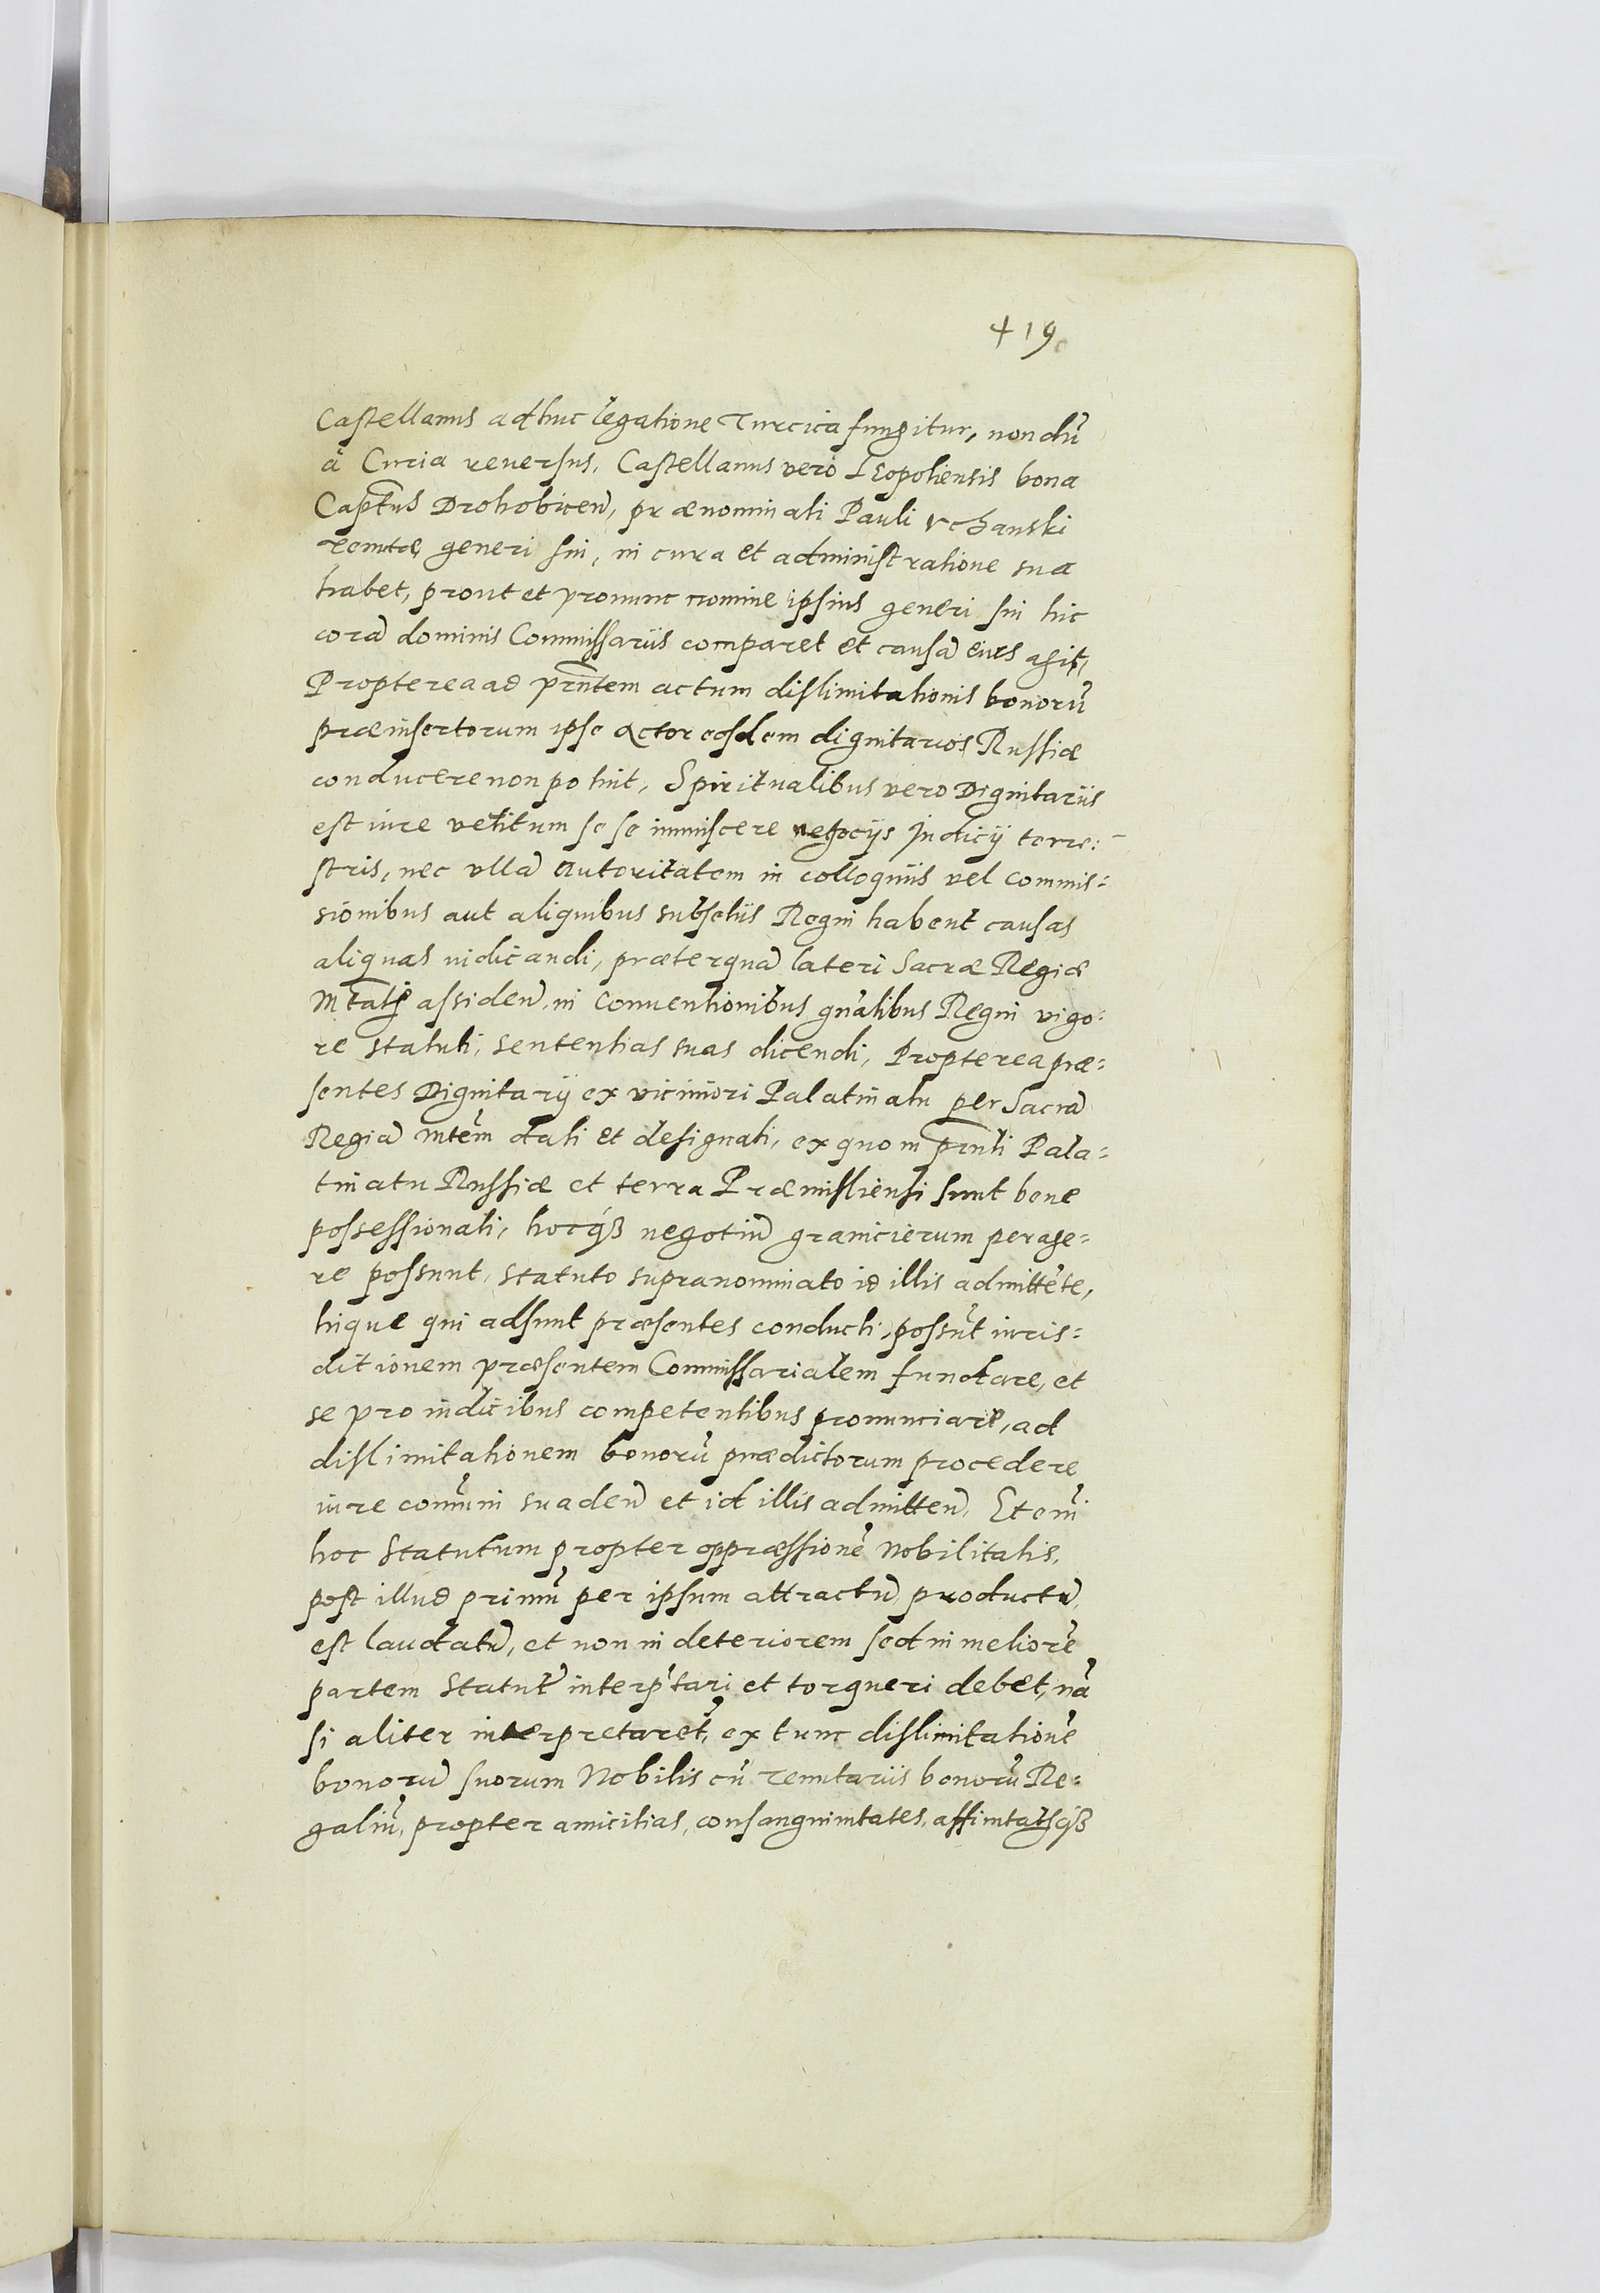 419
Castellanus adhuc legatione Turcica fungitur, nondũ
à Curia reuersus, Castellanus vero Leopoliensis bona
Captus Drohobicen̄, prænominati Pauli Vchanski
generi sui, in cura et administratione sua
habet, prout et pronunc nomine ipsius generi sui hic
corã dominis Commissariis comparet et causã eius agit,
Propterea ad prntem actum dislimitationis bonorũ
præinsertorum ipse Actor eosdem dignitarios Russiæ
conducere non potuit, Spiritualibus vero Dignitariis
est iure vetitum se se immiscere negocijs Judicij terre:
stris, nec vllã autoritatem in colloquiis vel commis=
sionibus aut aliquibus subseliis Regni habent causas
aliquas iudicandi, præterquã lateri Sacræ Regiæ
Mtatis assiden̄, in conuentionibus gnãlibus Regni vigo=
re statuti, sententias suas dicendi, Propterea præ=
sentes Dignitarij ex viciniori Palatinatu per Sacrã
Regiã Mtẽm dati et designati, ex quo in prnti Pala=
tinatu Russiæ et terra Præmisliensi sunt bene
possessionati, hocq3 negotiũ granicierum perage=
re possunt, statuto supranominato id illis admittẽte,
hique qui adsunt præsentes conducti, possũt iuris=
ditionem præsentem Commissarialem functare, et
se pro iudicibus competentibus pronunciare, ad
dislimitationem bonorũ prædictorum procedere
iure comũni suaden̄ et id illis admitten̄. Etenĩ
hoc statutum propter oppræssionẽ Nobilitatis,
post illud primũ per ipsum attractũ productũ
est laudatũ, et non in deteriorem sed in meliorẽ
partem statut̃ interp̃tari et torqueri debet, nã
si aliter interpretaret̃, ex tunc dislimitationẽ
bonorũ suorum Nobilis cũ tenutariis bonorũ Re=
galiũ, propter amicitias, consanguinitates, affinitatesq3